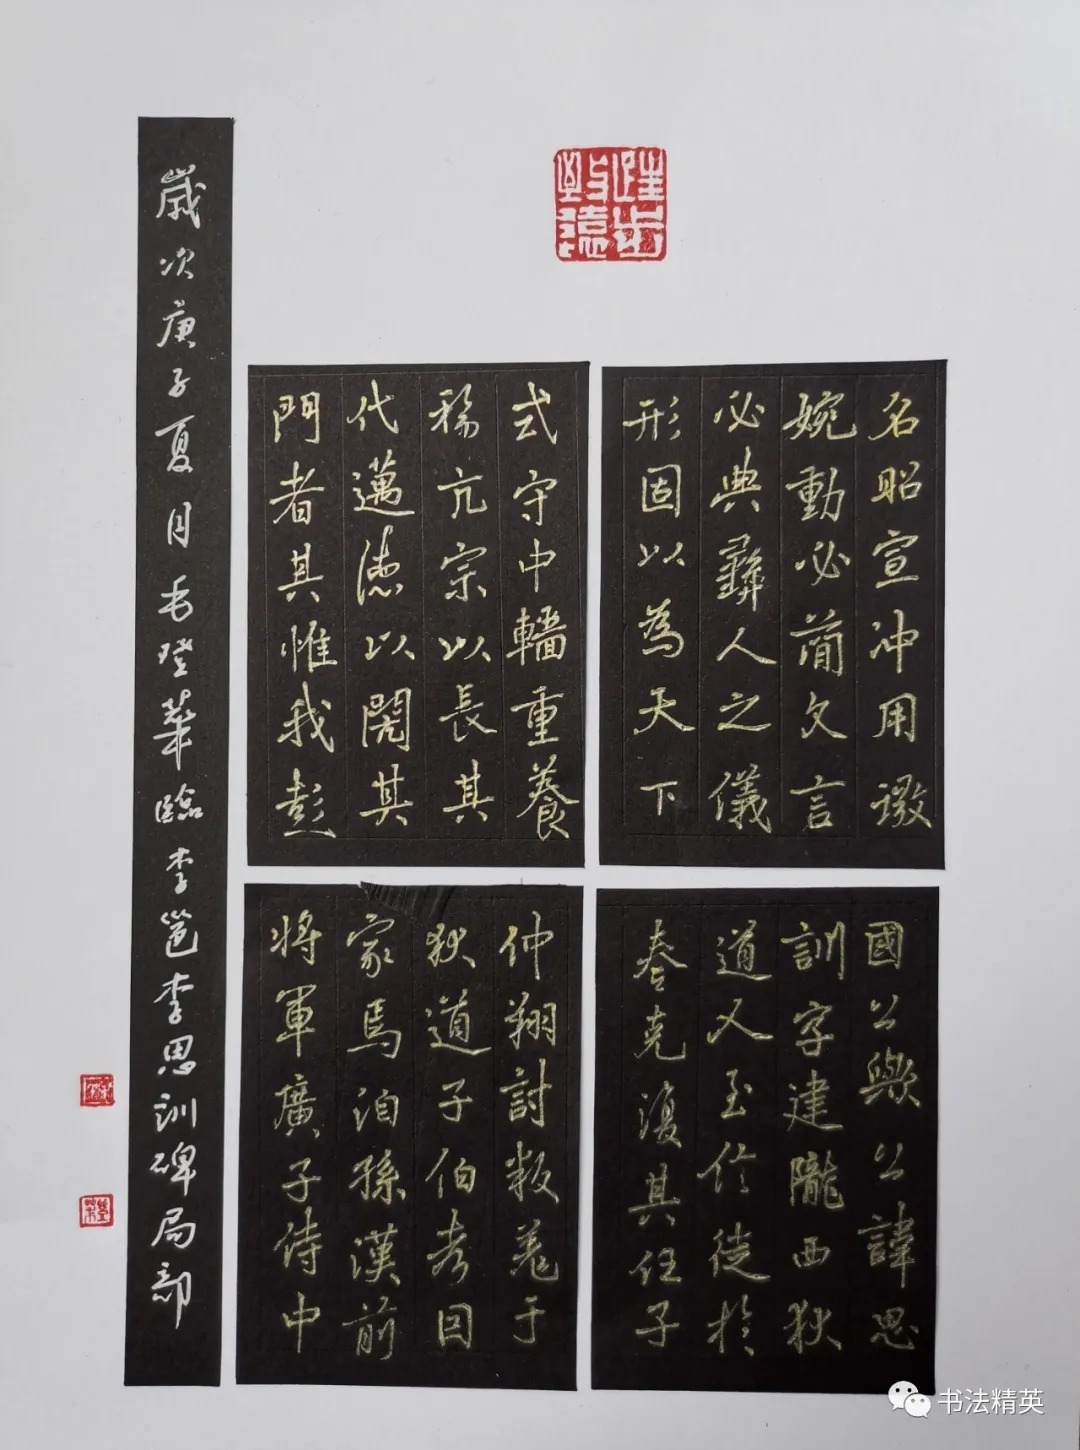 跬步致遠
名昭宣沖用譤
婉動必簡久言
必典彝人之儀
形固以為天下
式守中轖重養
稀亢宗以長其
代邁德以閱其
門者其惟我彭
國公歟公諱思
訓字建隴西狄
道人至信徒於
秦克復其任子
仲翔討叛羌于
狄道子伯考因
家焉洎孫漢前
將軍廣子侍中
歲次庚子夏月毛登華臨李邕李思訓碑局部
书法精英